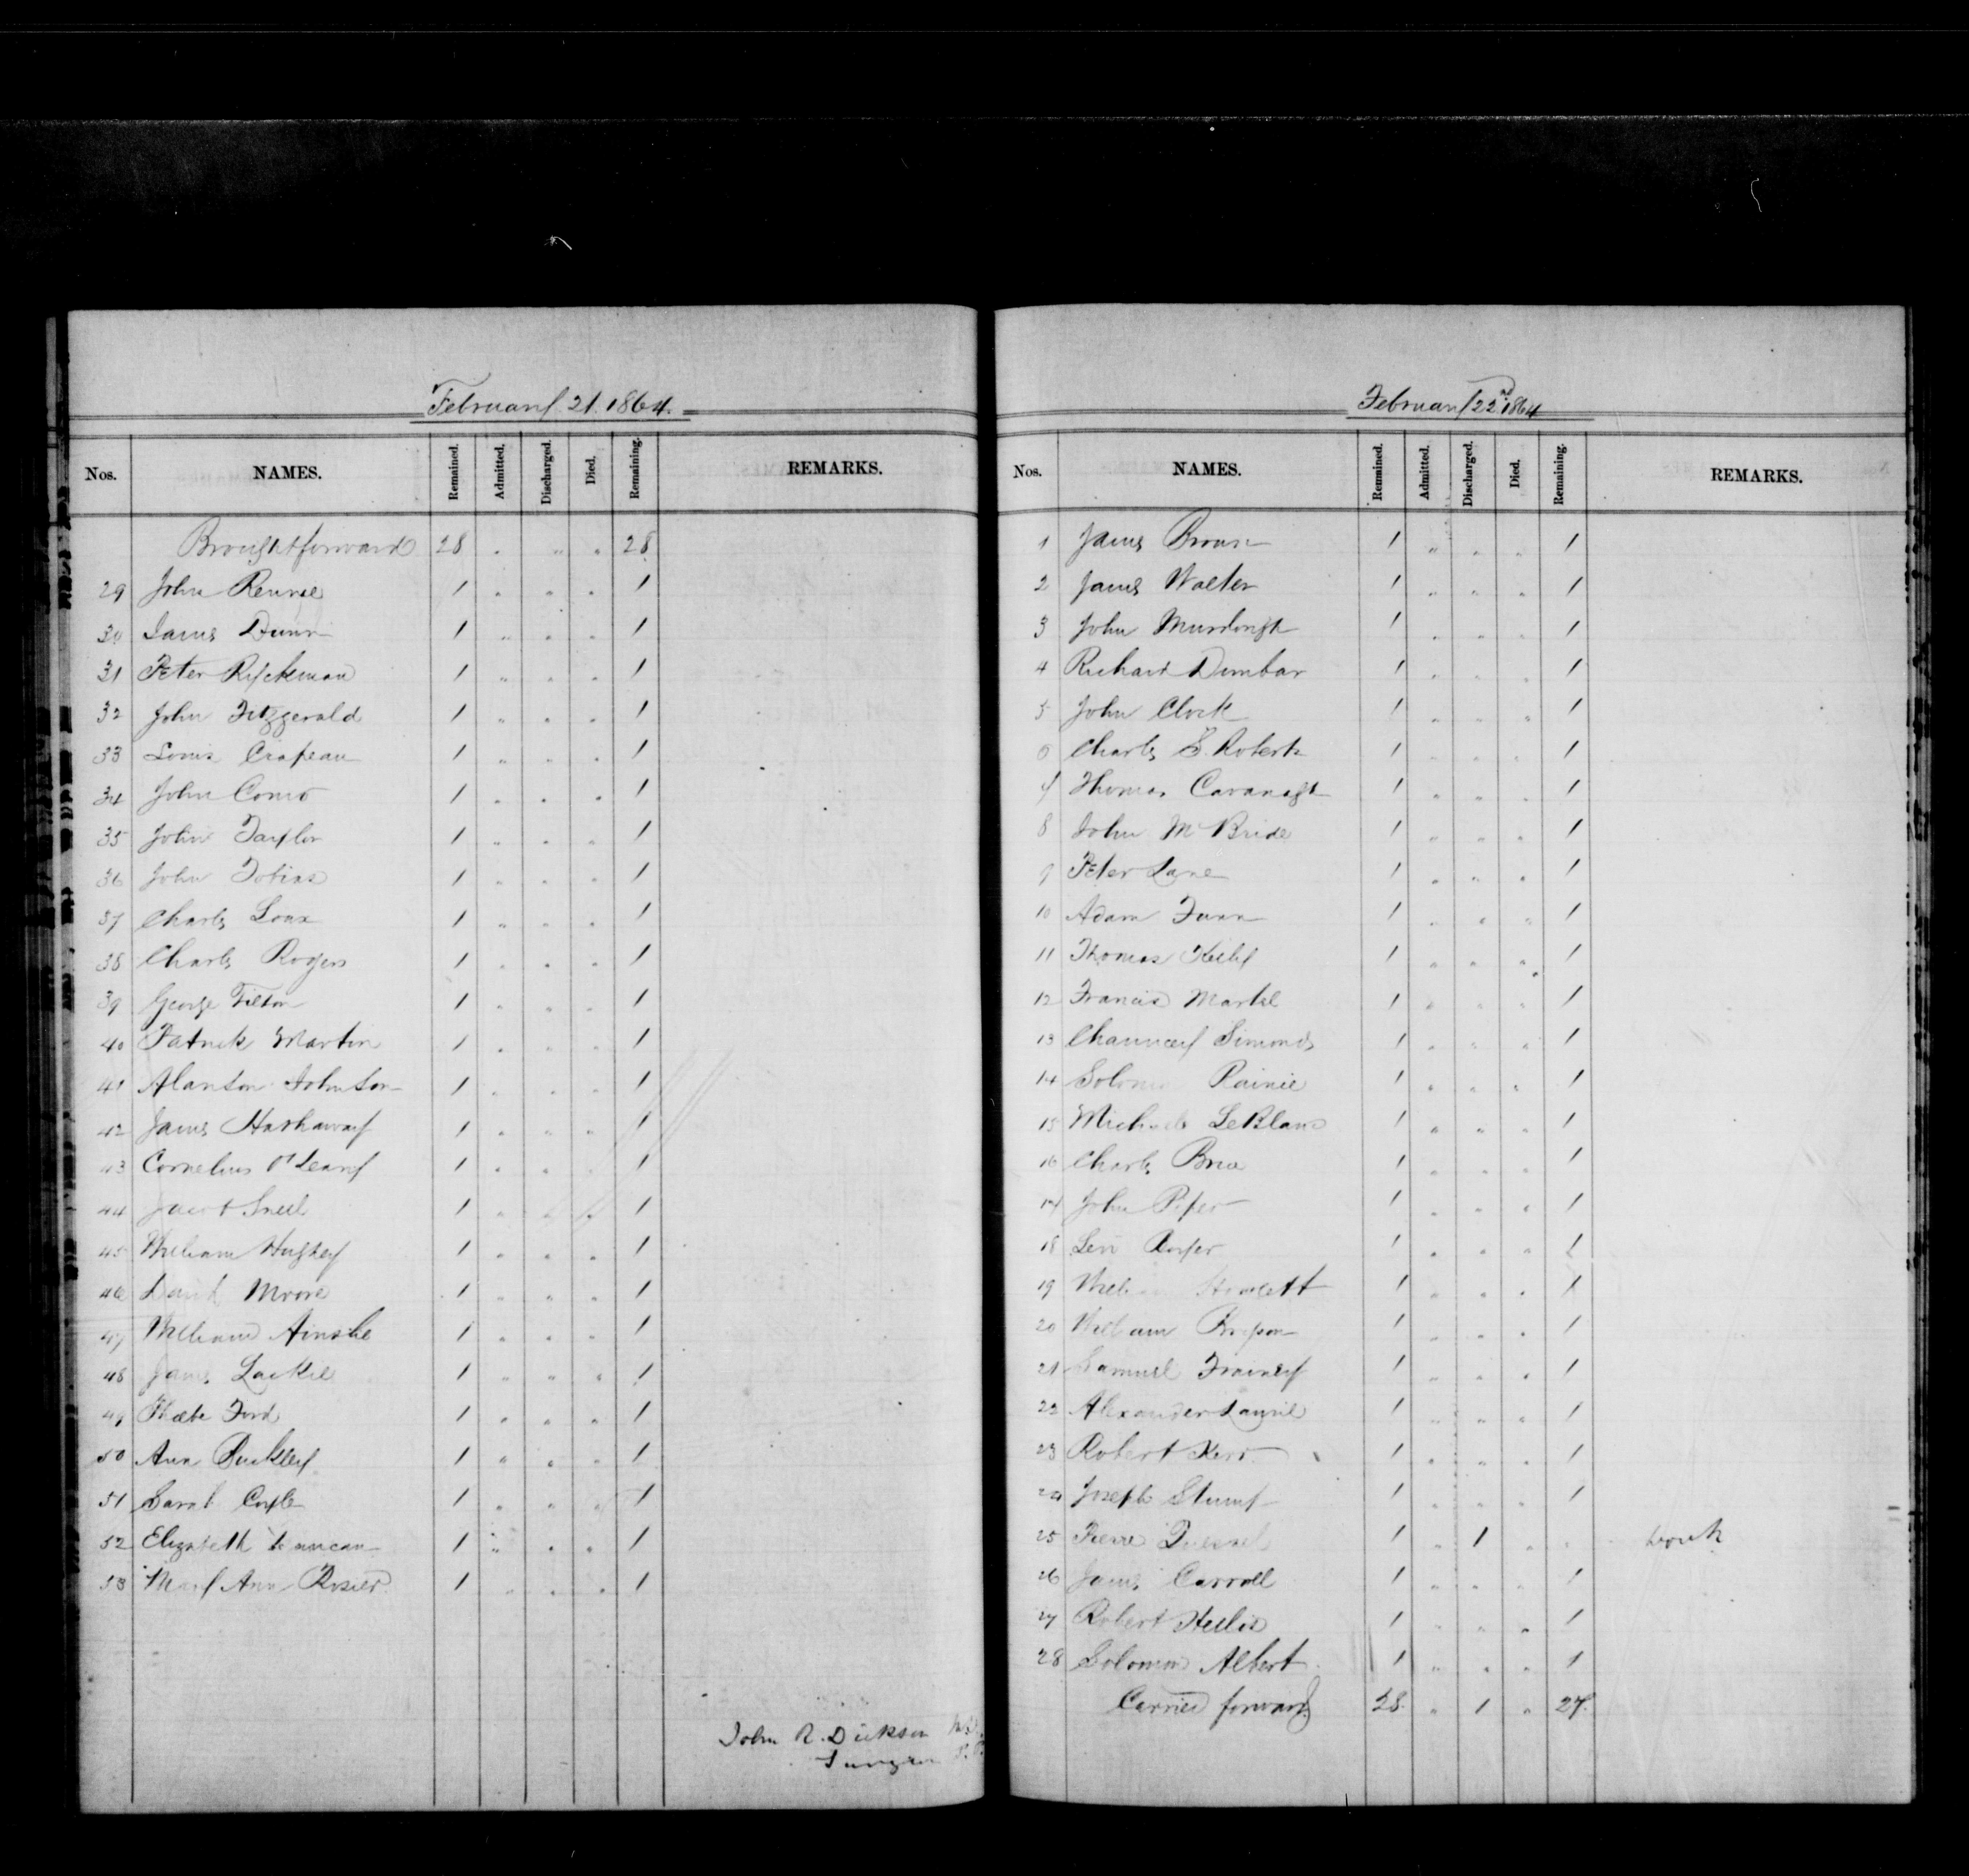 February 21. 1864.
Nos. NAMES. Remained. Admitted. Discharged. Died. Remaining. REMARKS.
Brought forward 28 " " " 28
29 John Rennie 1 " " " 1
30 James Dunn 1 " " " 1
31 Peter Ryckman 1 " " " 1
32 John Fitzgerald 1 " " " 1
33 Louis Crapeau 1 " " " 1
34 John Como 1 " " " 1
35 John Taylor 1 " " " 1
36 John Tobias 1 " " " 1
37 Charles Loux 1 " " " 1
38 Charles Rogers 1 " " " 1
39 George Tilton 1 " " " 1
40 Patrick Martin 1 " " " 1
41 Alanson Johnson 1 " " " 1
42 James Hathaway 1 " " " 1
43 Cornelius O'Leary 1 " " " 1
44 Jacob Snell 1 " " " 1
45 William Hughey 1 " " " 1
46 David Moore 1 " " " 1
47 William Ainslie 1 " " " 1
48 James Lackie 1 " " " 1
49 Phœbe Ford 1 " " " 1
50 Ann Buckley 1 " " " 1
51 Sarah Coyle 1 " " " 1
52 Elizabeth Duncan 1 " " " 1
53 Mary Ann Rosier 1 " " " 1
John R. Dickson M.D.
Surgeon
February 22nd 1864
Nos. NAMES. Remained. Admitted. Discharged. Died. Remaining. REMARKS.
1 James Brown 1 " " " 1
2 James Walter 1 " " " 1
3 John Murdough 1 " " " 1
4 Richard Dunbar 1 " " " 1
5 John Clock 1 " " " 1
6 Charles S. Roberts 1 " " " 1
7 Thomas Cavanagh 1 " " " 1
8 John McBride 1 " " " 1
9 Peter Lane 1 " " " 1
10 Adam Funn 1 " " " 1
11 Thomas Kieley 1 " " " 1
12 Francis Martel 1 " " " 1
13 Chauncey Simonds 1 " " " 1
14 Solomon Rainie 1 " " " 1
15 Michael LeBlanc 1 " " " 1
16 Charles Brice 1 " " " 1
17 John Piper 1 " " " 1
18 Levi Roser 1 " " " 1
19 William Howlett 1 " " " 1
20 William 1 " " " 1
21 Samuel Frainey 1 " " " 1
22 Alexander Laurie 1 " " " 1
23 Robert Kerr 1 " " " 1
24 Joseph Stump 1 " " " 1
25 Pierre 1 " 1 " " work
26 James Carroll 1 " " " 1
27 Robert Hellis 1 " " " 1
28 Solomon Albert 1 " " " 1
Carried forward 28 " 1 " 27